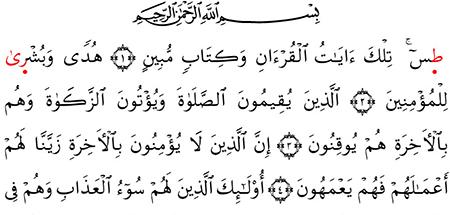 بِسْمِ اللَّهِ الرَّحْمَٰنِ الرَّحِيمِ
طسٓ ۚ تِلْكَ ءَايَاتُ الْقُرْءَانِ وَكِتَابٍ مُّبِينٍ ﴿١﴾ هُدًى وَبُشْرَىٰ
لِلْمُؤْمِنِينَ ﴿٢﴾ الَّذِينَ يُقِيمُونَ الصَّلَوٰةَ وَيُؤْتُونَ الزَّكَوٰةَ وَهُم
بِالْأَخِرَةِ هُمْ يُوقِنُونَ ﴿٣﴾ إِنَّ الَّذِينَ لَا يُؤْمِنُونَ بِالْأَخِرَةِ زَيَّنَّا لَهُمْ
أَعْمَـٰلَهُمْ فَهُمْ يَعْمَهُونَ ﴿٤﴾ أُوْلَـٰئِكَ الَّذِينَ لَهُمْ سُوٓءُ الْعَذَابِ وَهُمْ فِى